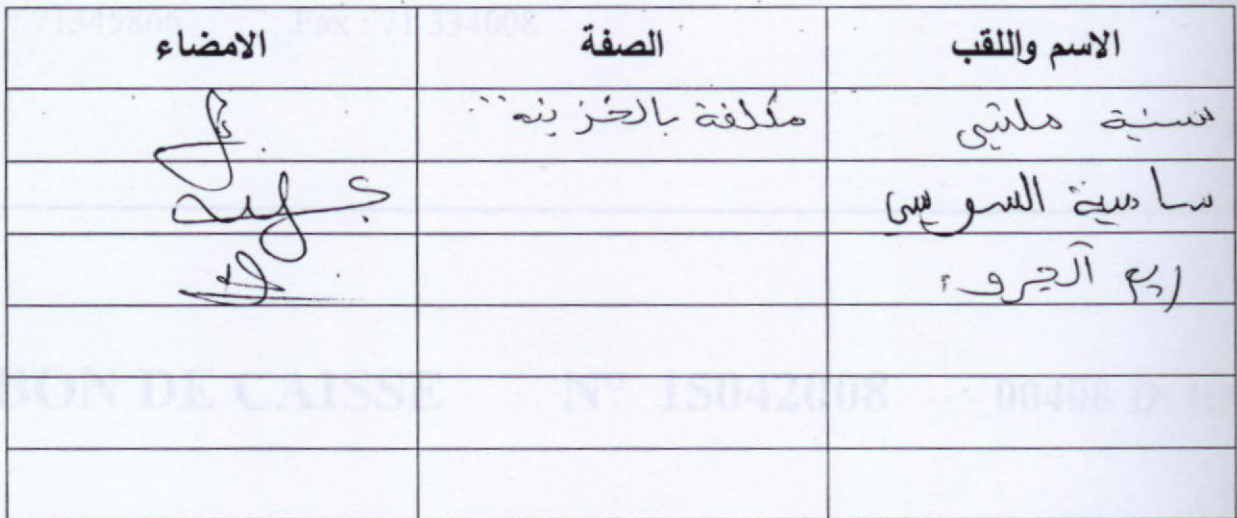 71345866 Fax : 71 334008
الاسم واللقب الصفة الامضاء
سنية ملتيي مكلفة بالخزينة
سامية السويسي
ريم
BON DE CAISSE N° 15042008 00408